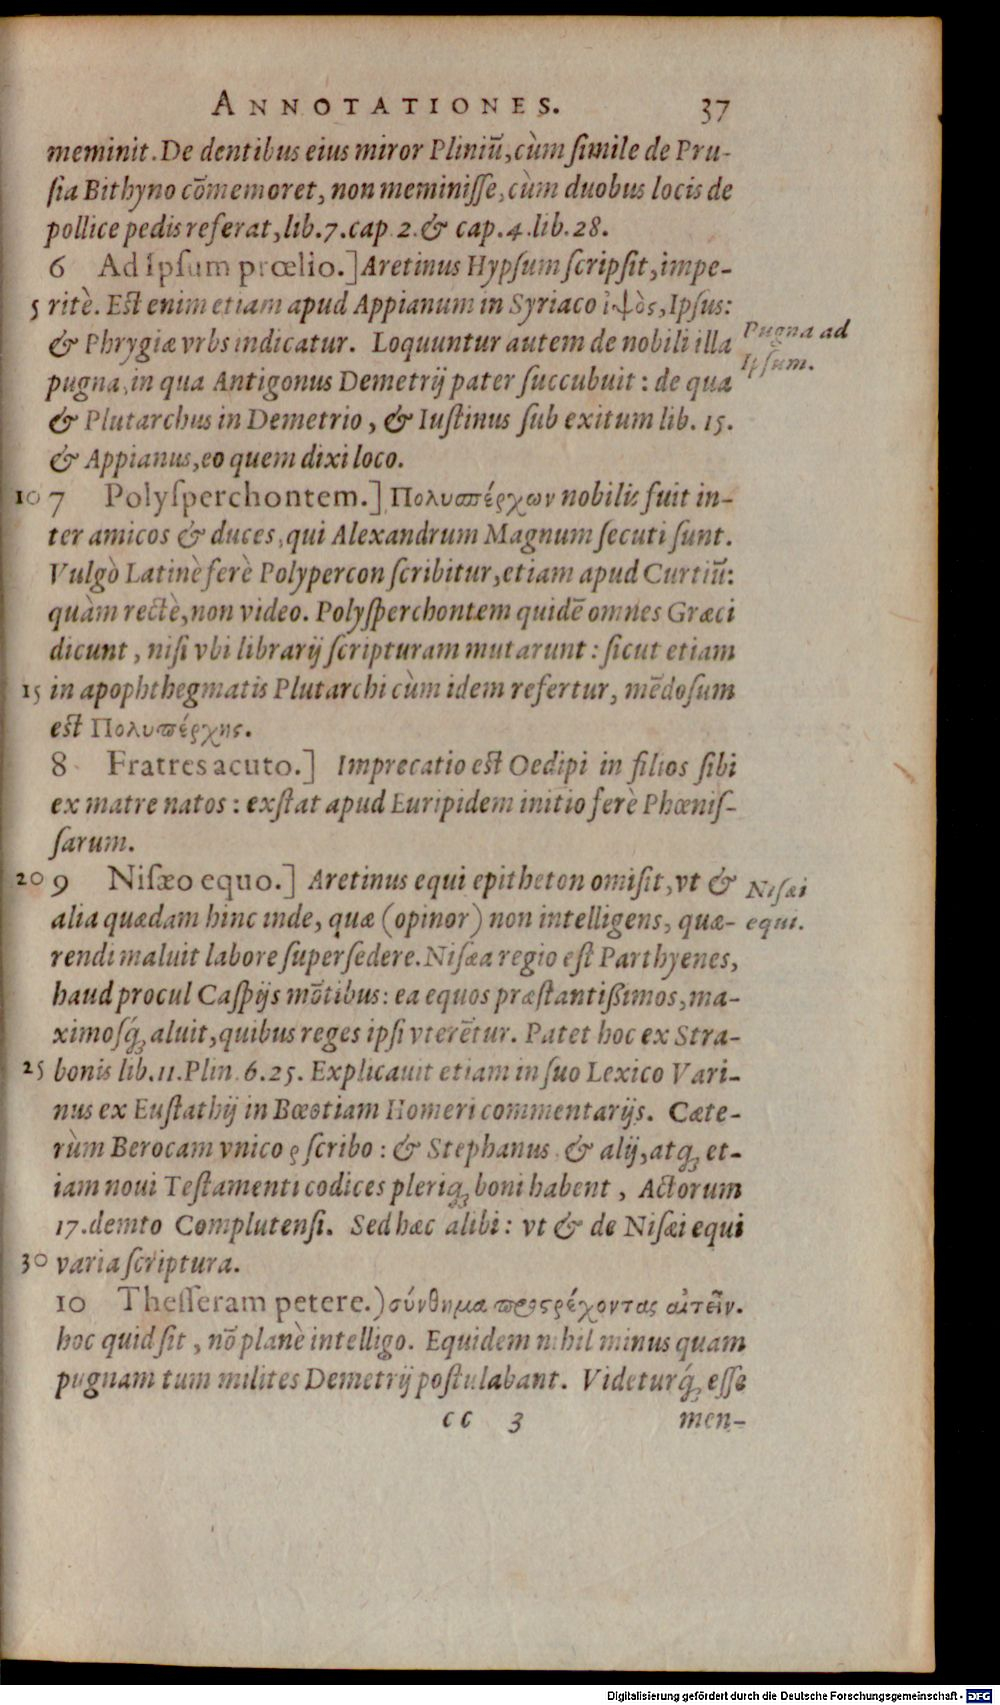 ANNOTATIONES. 37
meminit. De dentibus eius miror Pliniũ, cùm ſimile de Pru-
ſia Bithyno cõmemoret, non meminiſſe, cùm duobus locis de
pollice pedis referat, lib. 7. cap. 2. & cap. 4. lib. 28.
6 Ad Ipſum prœlio.] Aretinus Hypſum ſcripſit, impe-
5 ritè. Eſt enim etiam apud Appianum in Syriaco ἰψὸς, Ipſus:
& Phrygiæ vrbs indicatur. Loquuntur autem de nobili illa
Pugna ad
pugna, in qua Antigonus Demetrij pater ſuccubuit: de qua
Ipſum.
& Plutarchus in Demetrio, & Iuſtinus ſub exitum lib. 15.
& Appianus, eo quem dixi loco.
10 7 Polyſperchontem.] Πολυσπέρχων nobilis fuit in-
ter amicos & duces, qui Alexandrum Magnum ſecuti ſunt.
Vulgò Latinè ferè Polypercon ſcribitur, etiam apud Curtiũ:
quàm rectè, non video. Polyſperchontem quidẽ omnes Græci
dicunt, niſi vbi librarij ſcripturam mutarunt: ſicut etiam
15 in apophthegmatis Plutarchi cùm idem refertur, mẽdoſum
eſt Πολυπέρχης.
8 Fratres acuto.] Imprecatio eſt Oedipi in filios ſibi
ex matre natos: exſtat apud Euripidem initio ferè Phœniſ-
ſarum.
20 9 Niſæo equo.] Aretinus equi epitheton omiſit, vt &
Niſæi
alia quædam hinc inde, quæ (opinor) non intelligens, quæ-
equi.
rendi maluit labore ſuperſedere. Niſæa regio eſt Parthyenes,
haud procul Caſpijs mõtibus: ea equos præſtantißimos, ma-
ximoſq́; aluit, quibus reges ipſi vterẽtur. Patet hoc ex Stra-
25 bonis lib. 11. Plin. 6. 25. Explicauit etiam in ſuo Lexico Vari-
nus ex Euſtathij in Bœotiam Homeri commentarijs. Cæte-
rùm Berocam vnico ρ ſcribo: & Stephanus & alij, atq; et-
iam noui Teſtamenti codices pleriq; boni habent, Actorum
17. demto Complutenſi. Sed hæc alibi: vt & de Niſæi equi
30 varia ſcriptura.
10 Theſſeram petere.) σύνθημα προςρέχοντας αἰτεῖν.
hoc quid ſit, nõ planè intelligo. Equidem nihil minus quam
pugnam tum milites Demetrij poſtulabant. Videturq́; eſſe
cc 3 men-
Digitalisierung gefördert durch die Deutsche Forschungsgemeinschaft - DFG